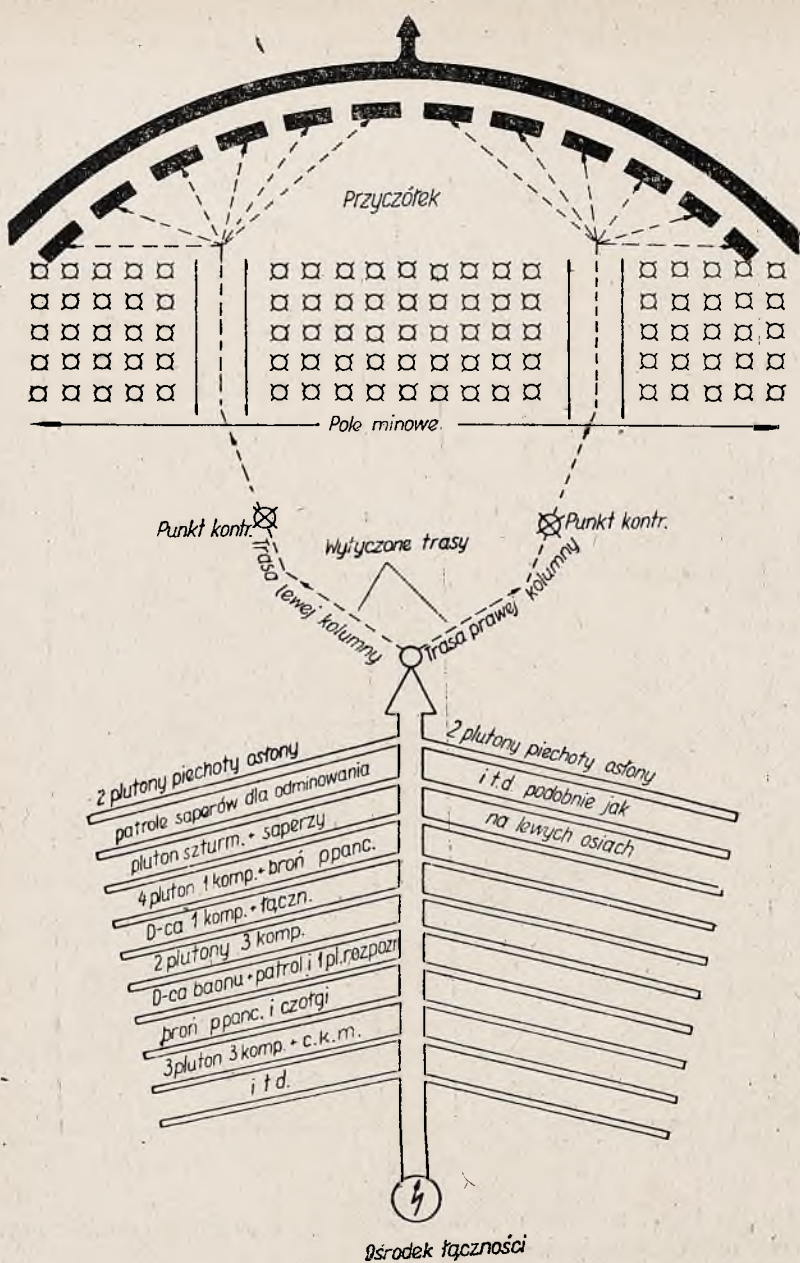 Przyczółek
Pole minowe.
Punkt kontr.
Punkt kontr.
Wytyczone trasy
Trasa lewej kolumny
Trasa prawej kolumny
2 plutony piechoty osłony
patrole saperów dla odminowania
pluton szturm. + saperzy
4 pluton 1 komp. + broń ppanc.
D-ca 1 komp. + łączn.
2 plutony 3 komp.
D-ca baonu + patrol i 1 pl. rozpozn
broń ppanc. i czołgi
3 pluton 3 komp. + c.k.m.
i t d.
2 plutony piechoty osłony
i t.d. podobnie jak
na lewych osiach
Ośrodek łączności